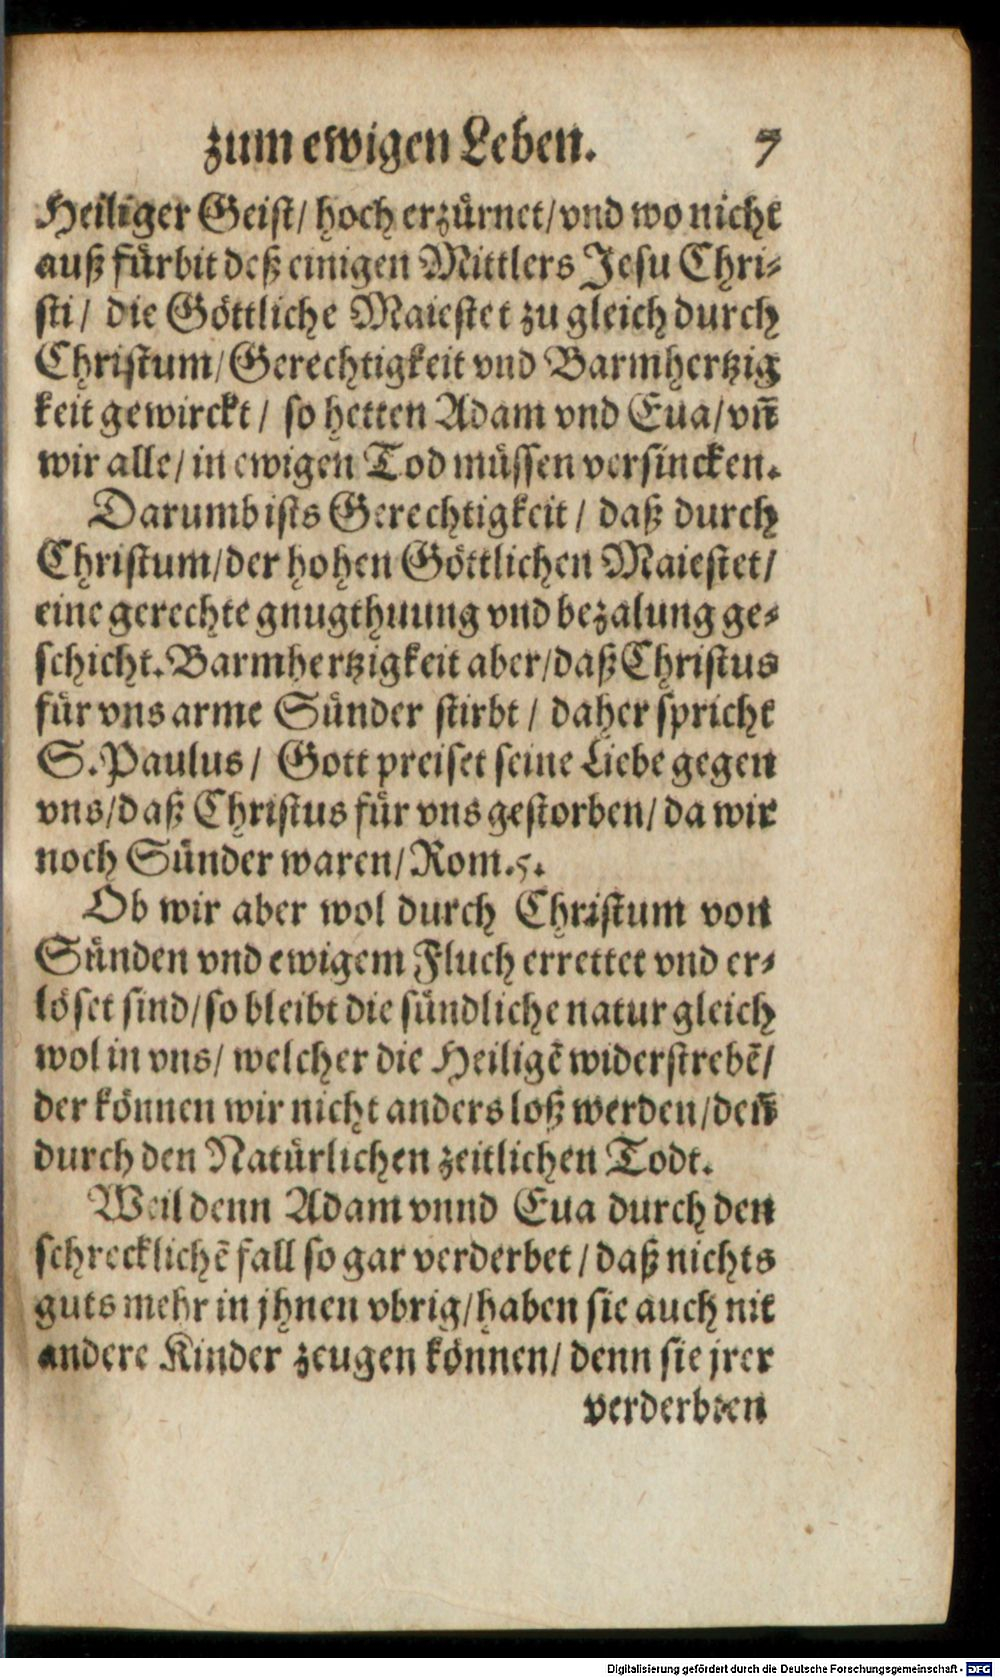 zum ewigen Leben. 7
Heiliger Geist/ hoch erzürnet/ vnd wo nicht
auß fürbit deß einigen Mittlers Jesu Chri-
sti/ die Göttliche Maiestet zu gleich durch
Christum/ Gerechtigkeit vnd Barmhertzig
keit gewirckt/ so hetten Adam vnd Eua/ vñ
wir alle/ in ewigen Tod müssen versincken.
Darumb ists Gerechtigkeit/ daß durch
Christum/ der hohen Göttlichen Maiestet/
eine gerechte gnugthuung vnd bezalung ge-
schicht. Barmhertzigkeit aber/ daß Christus
für vns arme Sünder stirbt/ daher spricht
S. Paulus/ Gott preiset seine Liebe gegen
vns/ daß Christus für vns gestorben/ da wir
noch Sünder waren/ Rom. 5.
Ob wir aber wol durch Christum von
Sünden vnd ewigem Fluch errettet vnd er-
löset sind/ so bleibt die sündliche natur gleich
wol in vns/ welcher die Heiligẽ widerstrebẽ/
der können wir nicht anders loß werden/ deñ
durch den Natürlichen zeitlichen Todt.
Weil denn Adam vnnd Eua durch den
schrecklichẽ fall so gar verderbet/ daß nichts
guts mehr in jhnen vbrig/ haben sie auch nit
andere Kinder zeugen können/ denn sie jrer
verderbten
Digitalisierung gefördert durch die Deutsche Forschungsgemeinschaft - DFG